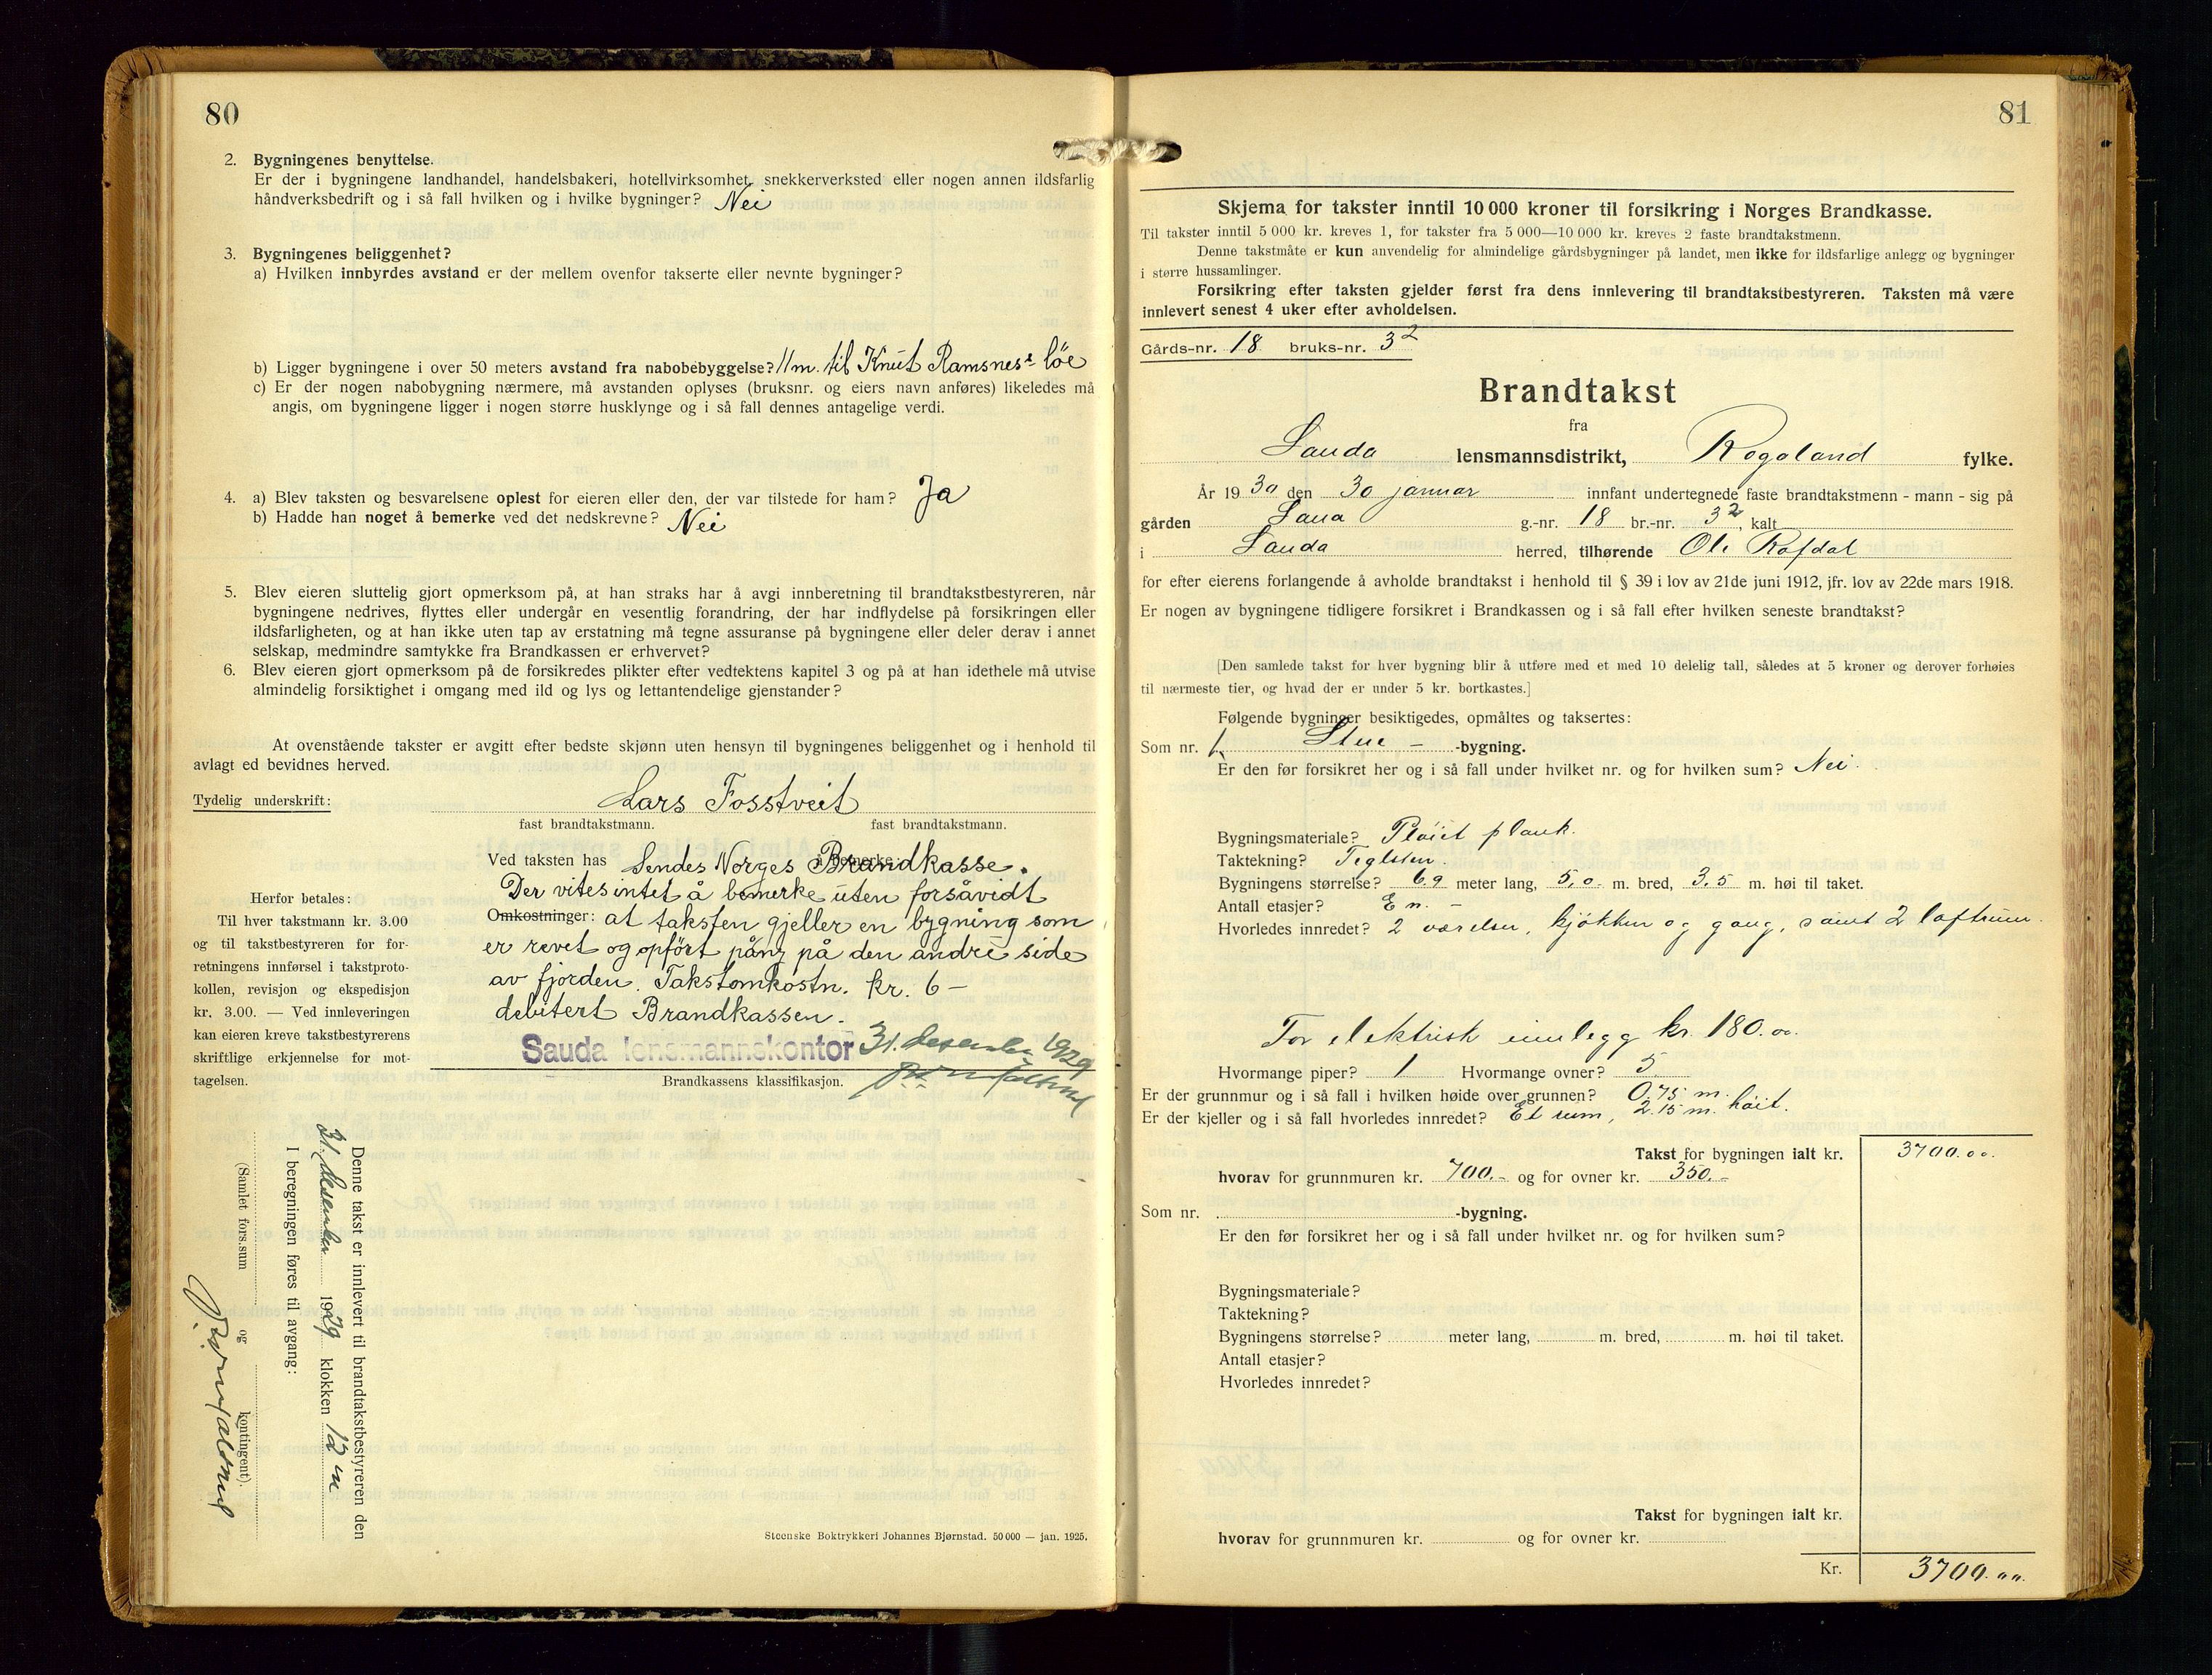 80
2. Bygningenes benyttelse.
Er der i bygningene landhandel, handelsbakeri, hotellvirksomhet, snekkerverksted eller nogen annen ildsfarlig
håndverksbedrift og i så fall hvilken og i hvilke bygninger? Nei
3. Bygningenes beliggenhet?
a) Hvilken innbyrdes avstand er der mellem ovenfor takserte eller nevnte bygninger?
b) Ligger bygningene i over 50 meters avstand fra nabobebyggelse? 11 m. til Knut Ramsnes's löe
c) Er der nogen nabobygning nærmere, må avstanden oplyses (bruksnr. og eiers navn anføres) likeledes må
angis, om bygningene ligger i nogen større husklynge og i så fall dennes antagelige verdi.
4. a) Blev taksten og besvarelsene oplest for eieren eller den, der var tilstede for ham? Ja
b) Hadde han noget å bemerke ved det nedskrevne? Nei
5. Blev eieren sluttelig gjort opmerksom på, at han straks har å avgi innberetning til brandtakstbestyreren, når
bygningene nedrives, flyttes eller undergår en vesentlig forandring, der har indflydelse på forsikringen eller
ildsfarligheten, og at han ikke uten tap av erstatning må tegne assuranse på bygningene eller deler derav i annet
selskap, medmindre samtykke fra Brandkassen er erhvervet?
6. Blev eieren gjort opmerksom på de forsikredes plikter efter vedtektens kapitel 3 og på at han idethele må utvise
almindelig forsiktighet i omgang med ild og lys og lettantendelige gjenstander?
At ovenstående takster er avgitt efter bedste skjønn uten hensyn til bygningenes beliggenhet og i henhold til
avlagt ed bevidnes herved.
Tydelig underskrift: Lars Fosstveit
fast brandtakstmann. fast brandtakstmann.
Ved taksten has å bemerke: Sendes Norges Brandkasse.
Der vites intet å bemerke uten forsåvidt
Omkostninger: at taksten gjeller en bygning som
er revet og opfört påny på den andre side
av fjorden. Takstomkostn. kr. 6 –
debitert Brandkassen.
Sauda lensmannskontor 31. desember 1929
Brandkassens klassifikasjon.
Herfor betales:
Til hver takstmann kr. 3.00
og til takstbestyreren for for-
retningens innførsel i takstproto-
kollen, revisjon og ekspedisjon
kr. 3.00. — Ved innleveringen
kan eieren kreve takstbestyrerens
skriftlige erkjennelse for mot-
tagelsen.
Denne takst er innlevert til brandtakstbestyreren den
31. desember 1929 klokken 12 m
I beregningen føres til avgang:
(Samlet fors.sum og kontingent).
Steenske Boktrykkeri Johannes Bjørnstad. 50 000 — jan. 1925.
81
Skjema for takster inntil 10 000 kroner til forsikring i Norges Brandkasse.
Til takster inntil 5 000 kr. kreves 1, for takster fra 5 000—10 000 kr. kreves 2 faste brandtakstmenn.
Denne takstmåte er kun anvendelig for almindelige gårdsbygninger på landet, men ikke for ildsfarlige anlegg og bygninger
i større hussamlinger.
Forsikring efter taksten gjelder først fra dens innlevering til brandtakstbestyreren. Taksten må være
innlevert senest 4 uker efter avholdelsen.
Gårds-nr. 18 bruks-nr. 32
Brandtakst
fra
Sauda lensmannsdistrikt, Rogaland fylke.
År 1930 den 30 januar innfant undertegnede faste brandtakstmenn - mann - sig på
gården Saua g.-nr. 18 br.-nr. 32, kalt
i Sauda herred, tilhørende Ole Rafdal
for efter eierens forlangende å avholde brandtakst i henhold til § 39 i lov av 21de juni 1912, jfr. lov av 22de mars 1918.
Er nogen av bygningene tidligere forsikret i Brandkassen og i så fall efter hvilken seneste brandtakst?
[Den samlede takst for hver bygning blir å utføre med et med 10 delelig tall, således at 5 kroner og derover forhøies
til nærmeste tier, og hvad der er under 5 kr. bortkastes.]
Følgende bygninger besiktigedes, opmåltes og taksertes:
Som nr. 1 Stue – -bygning.
Er den før forsikret her og i så fall under hvilket nr. og for hvilken sum? Nei.
Bygningsmateriale? Pløiet plank.
Taktekning? Teglsten.
Bygningens størrelse? 6.9 meter lang, 5,0. m. bred, 3,5 m. høi til taket.
Antall etasjer? En. –
Hvorledes innredet? 2 værelser, kjökken og gang, samt 2 loftrum.
For elektrisk innlegg kr. 180.oo.
Hvormange piper? 1 Hvormange ovner? 5.
Er der grunnmur og i så fall i hvilken høide over grunnen? 0.75 m.
Er der kjeller og i så fall hvorledes innredet? Et rum, 2.15 m. höit.
Takst for bygningen ialt kr. 3700.oo.
hvorav for grunnmuren kr. 700.- og for ovner kr. 350.-
Som nr. -bygning.
Er den før forsikret her og i så fall under hvilket nr. og for hvilken sum?
Bygningsmateriale?
Taktekning?
Bygningens størrelse? meter lang, m. bred, m. høi til taket.
Antall etasjer?
Hvorledes innredet?
Takst for bygningen ialt kr.
hvorav for grunnmuren kr. og for ovner kr.
Kr. 3700.oo.